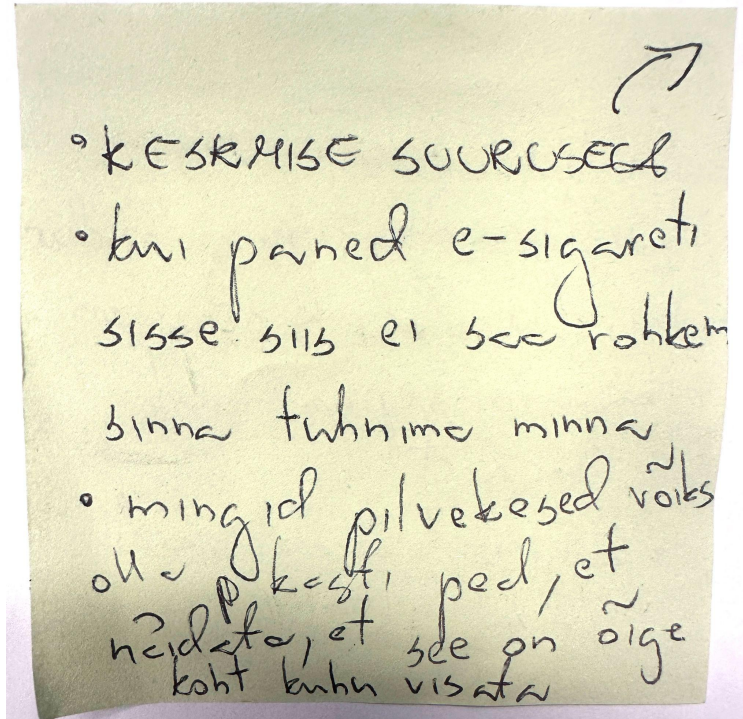 • KESKMISE SUURUSEGA
• kui paned e-sigareti
sisse siis ei saa rohkem
sinna tuhnima minna
• mingid pilvekesed võiks
olla kasti peal, et
näidata, et see on õige
koht kuhu visata